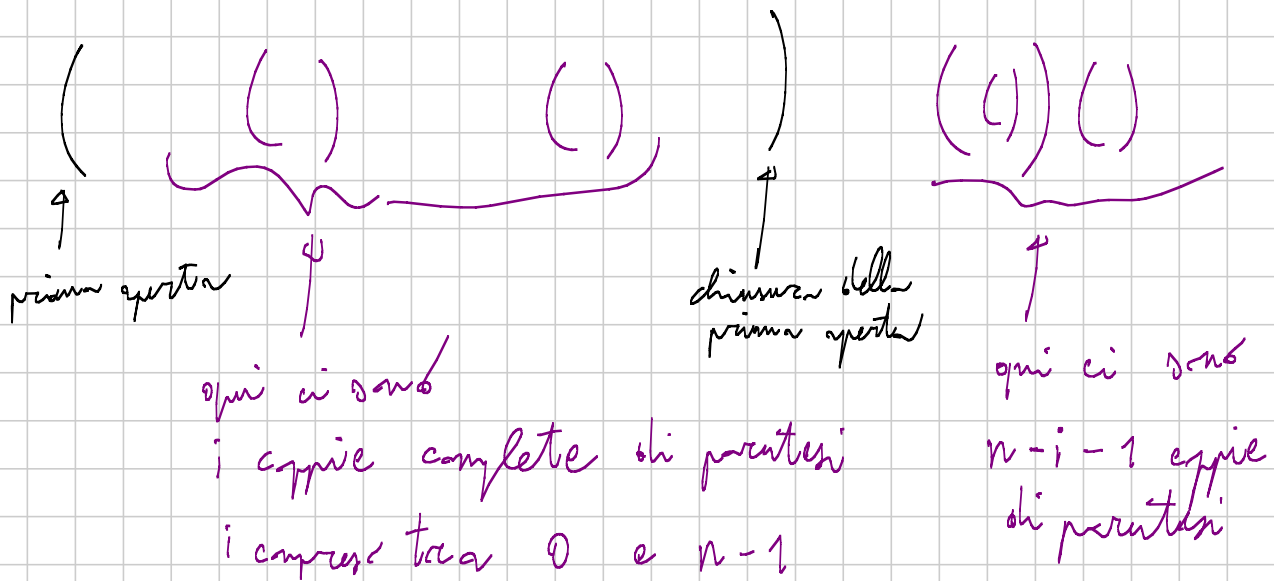 ( ( ) ( ) ) ( ( ) ) ( )
prima aperta
chiusura della
prima aperta
qui ci sono
i coppie complete di parentesi
i compreso tra 0 e n-1
qui ci sono
n-i-1 coppie
di parentesi